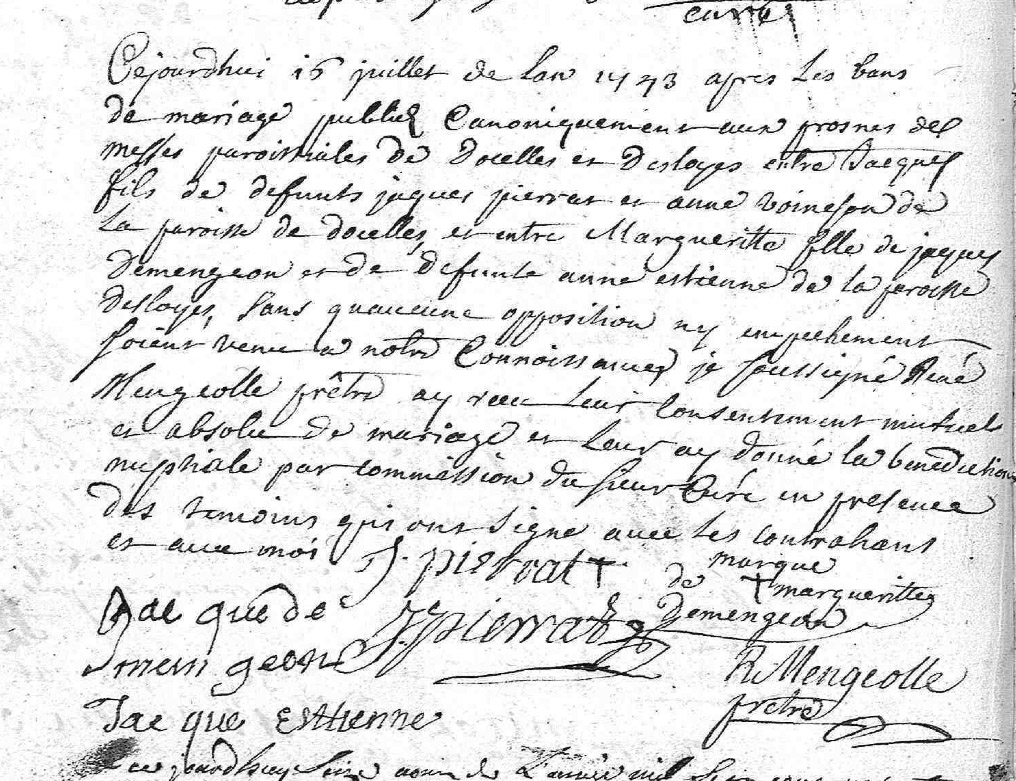 curé
Cejourdhui 16 juillet de lan 1743 apres les bans
de mariage publiez Canoniquement aux prosnes des
messes paroissiales de Docelles et Desloyes entre Jacques
fils de defunts jaques pierrat et anne Voineson de
La paroisse de docelles, et entre Margueritte fille de jaques
Demengeon et de defunte anne estienne de la paroisse
desloyes, Sans quaucune opposition ny empechement
soient venu a notre Connoissance, je soussigné René
Mengeolle prêtre ay recu leur Consentement mutuel
et absolu de mariage et Leur ay donné la benediction
nuptiale par commission du sieur Curé en presence
des temoins qui ont signe avec les contrahans
et avec moi J. pierrat + marque
de + margueritte
Jaeque de J. pierrat Demengeon
mein geon R. Mengeolle
prêtre
Jaeque Esttienne